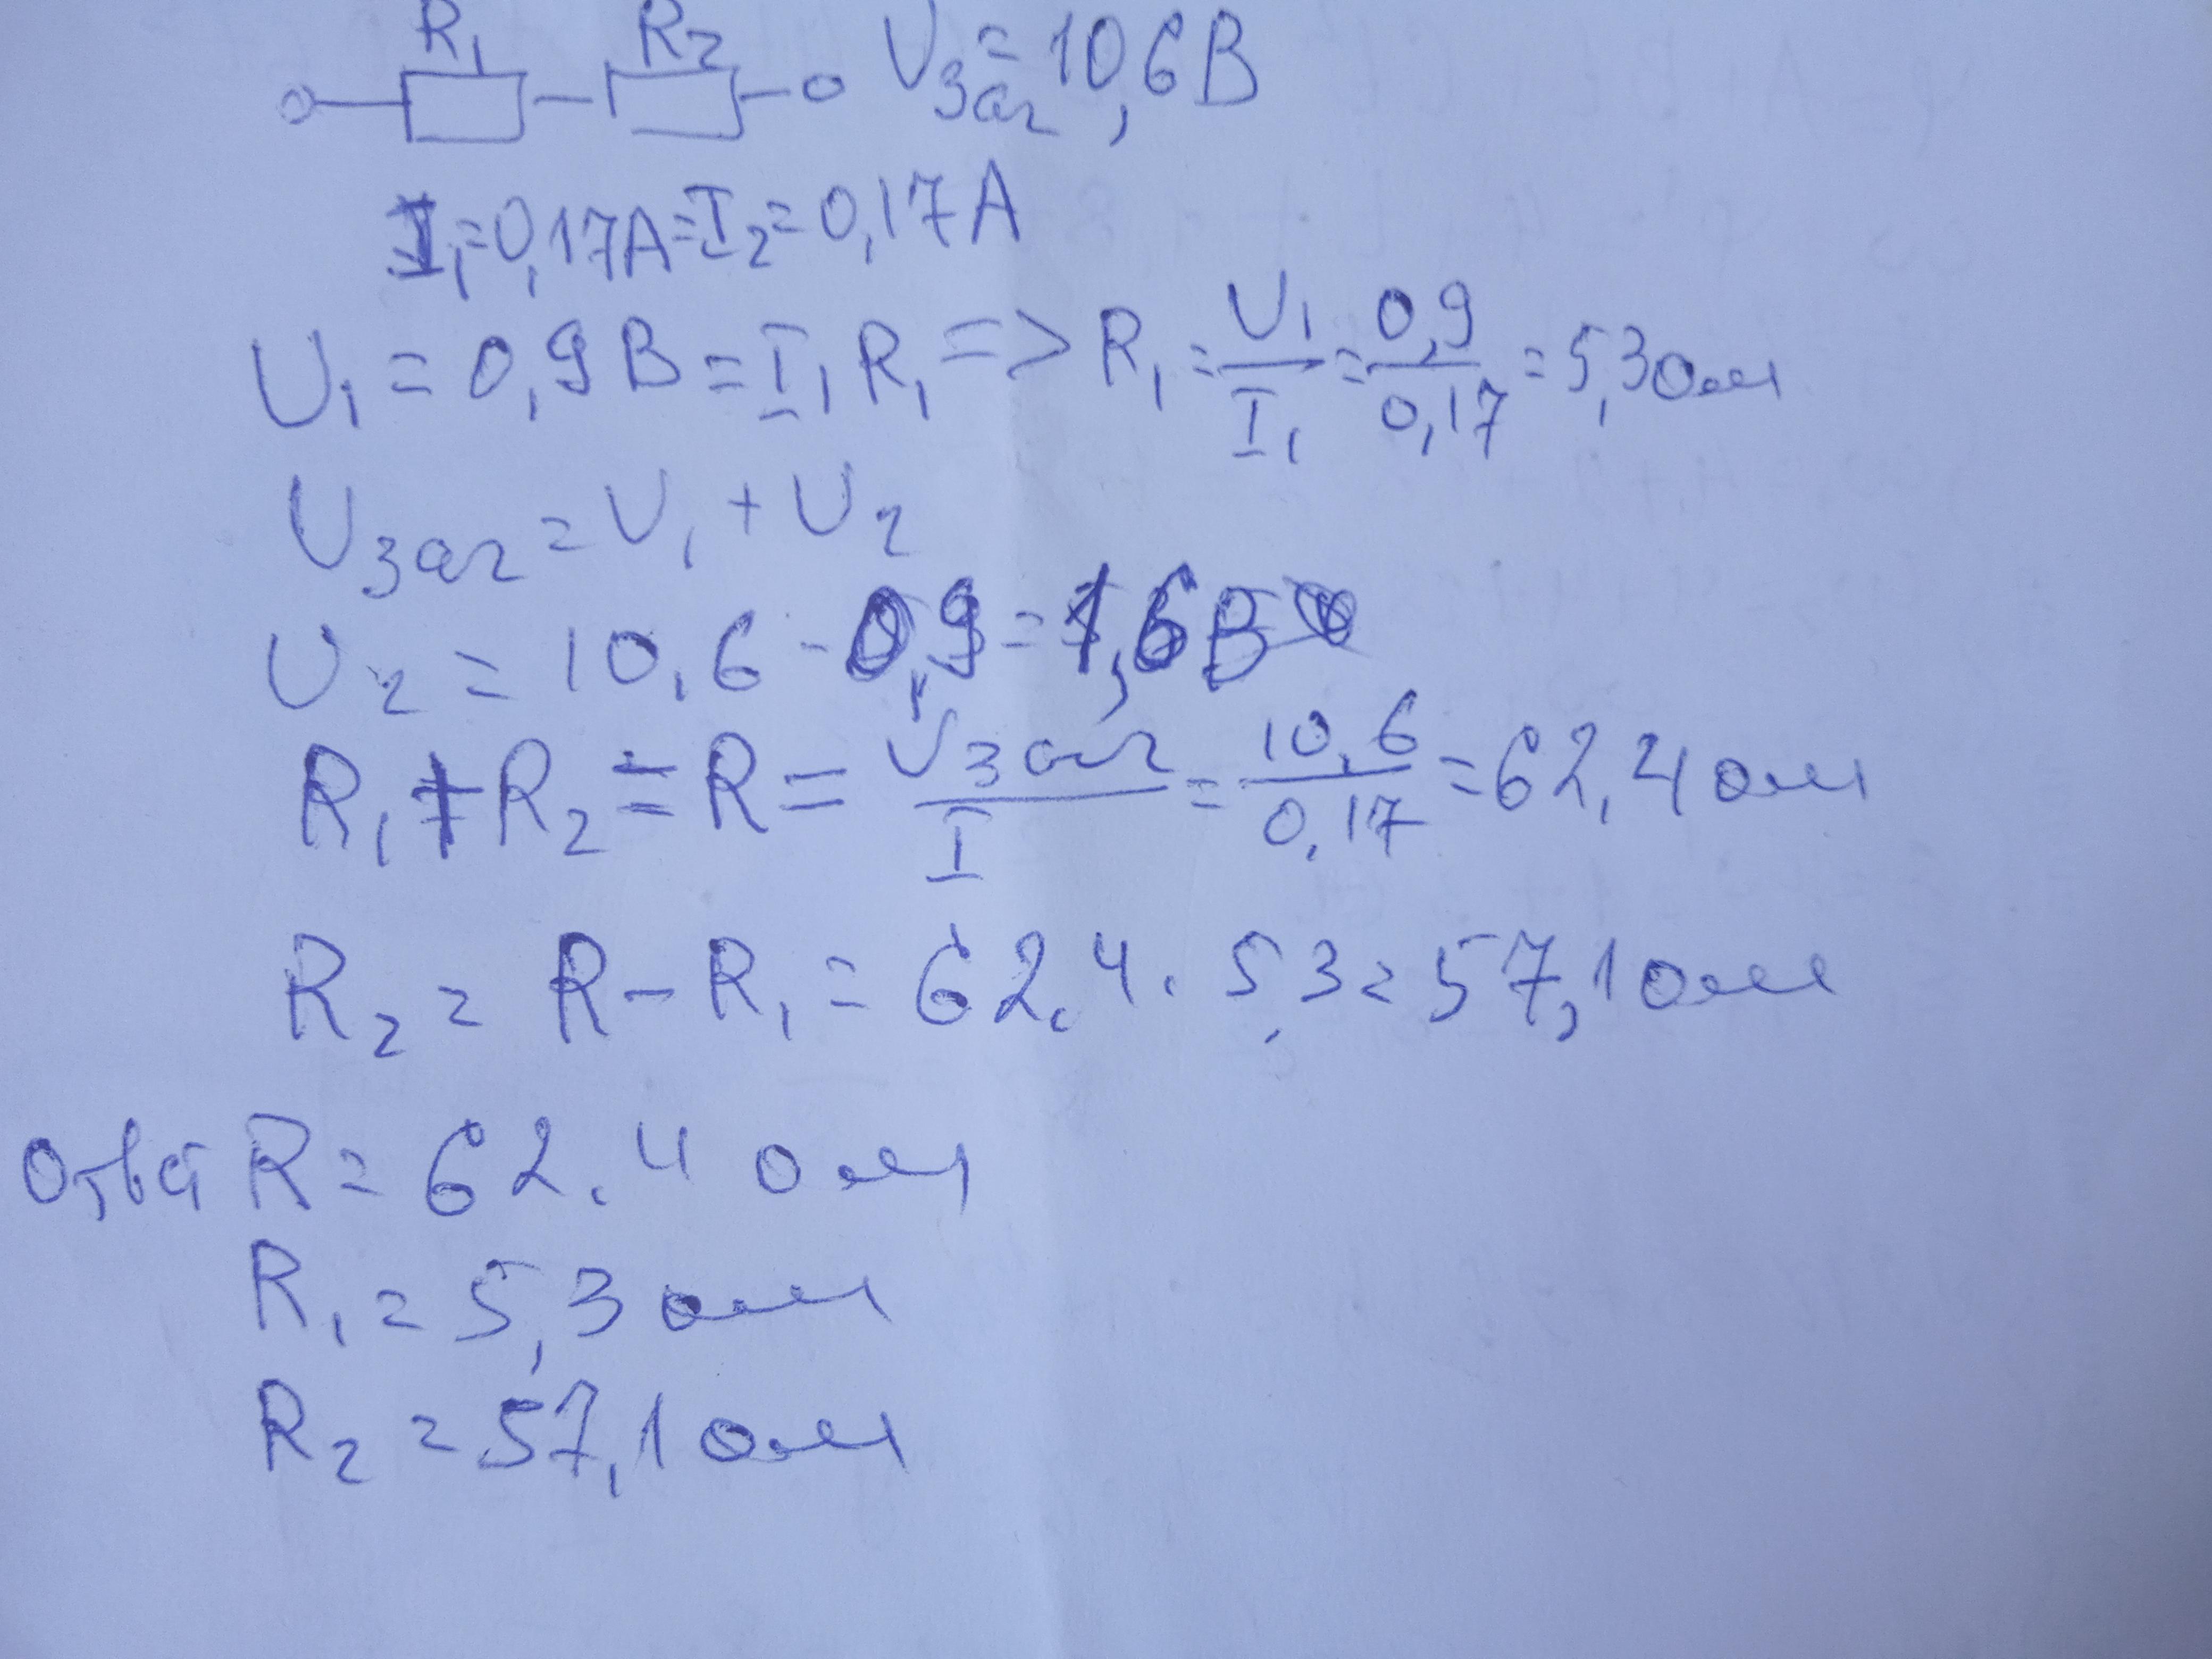 R₁ R₂ Uзаг = 10,6 В
I₁ = 0,17 А = I₂ = 0,17 А
U₁ = 0,9 В = I₁ R₁ => R₁ = U₁/I₁ = 0,9/0,17 = 5,3 ом
Uзаг = U₁ + U₂
U₂ = 10,6 - 0,9 = 1,6 В
R₁ + R₂ = R = Uзаг/I = 10,6/0,17 = 62,4 ом
R₂ = R - R₁ = 62,4 . 5,3 = 57,1 ом
R = 62.4 ом
R₁ = 5,3 ом
R₂ = 57,1 ом